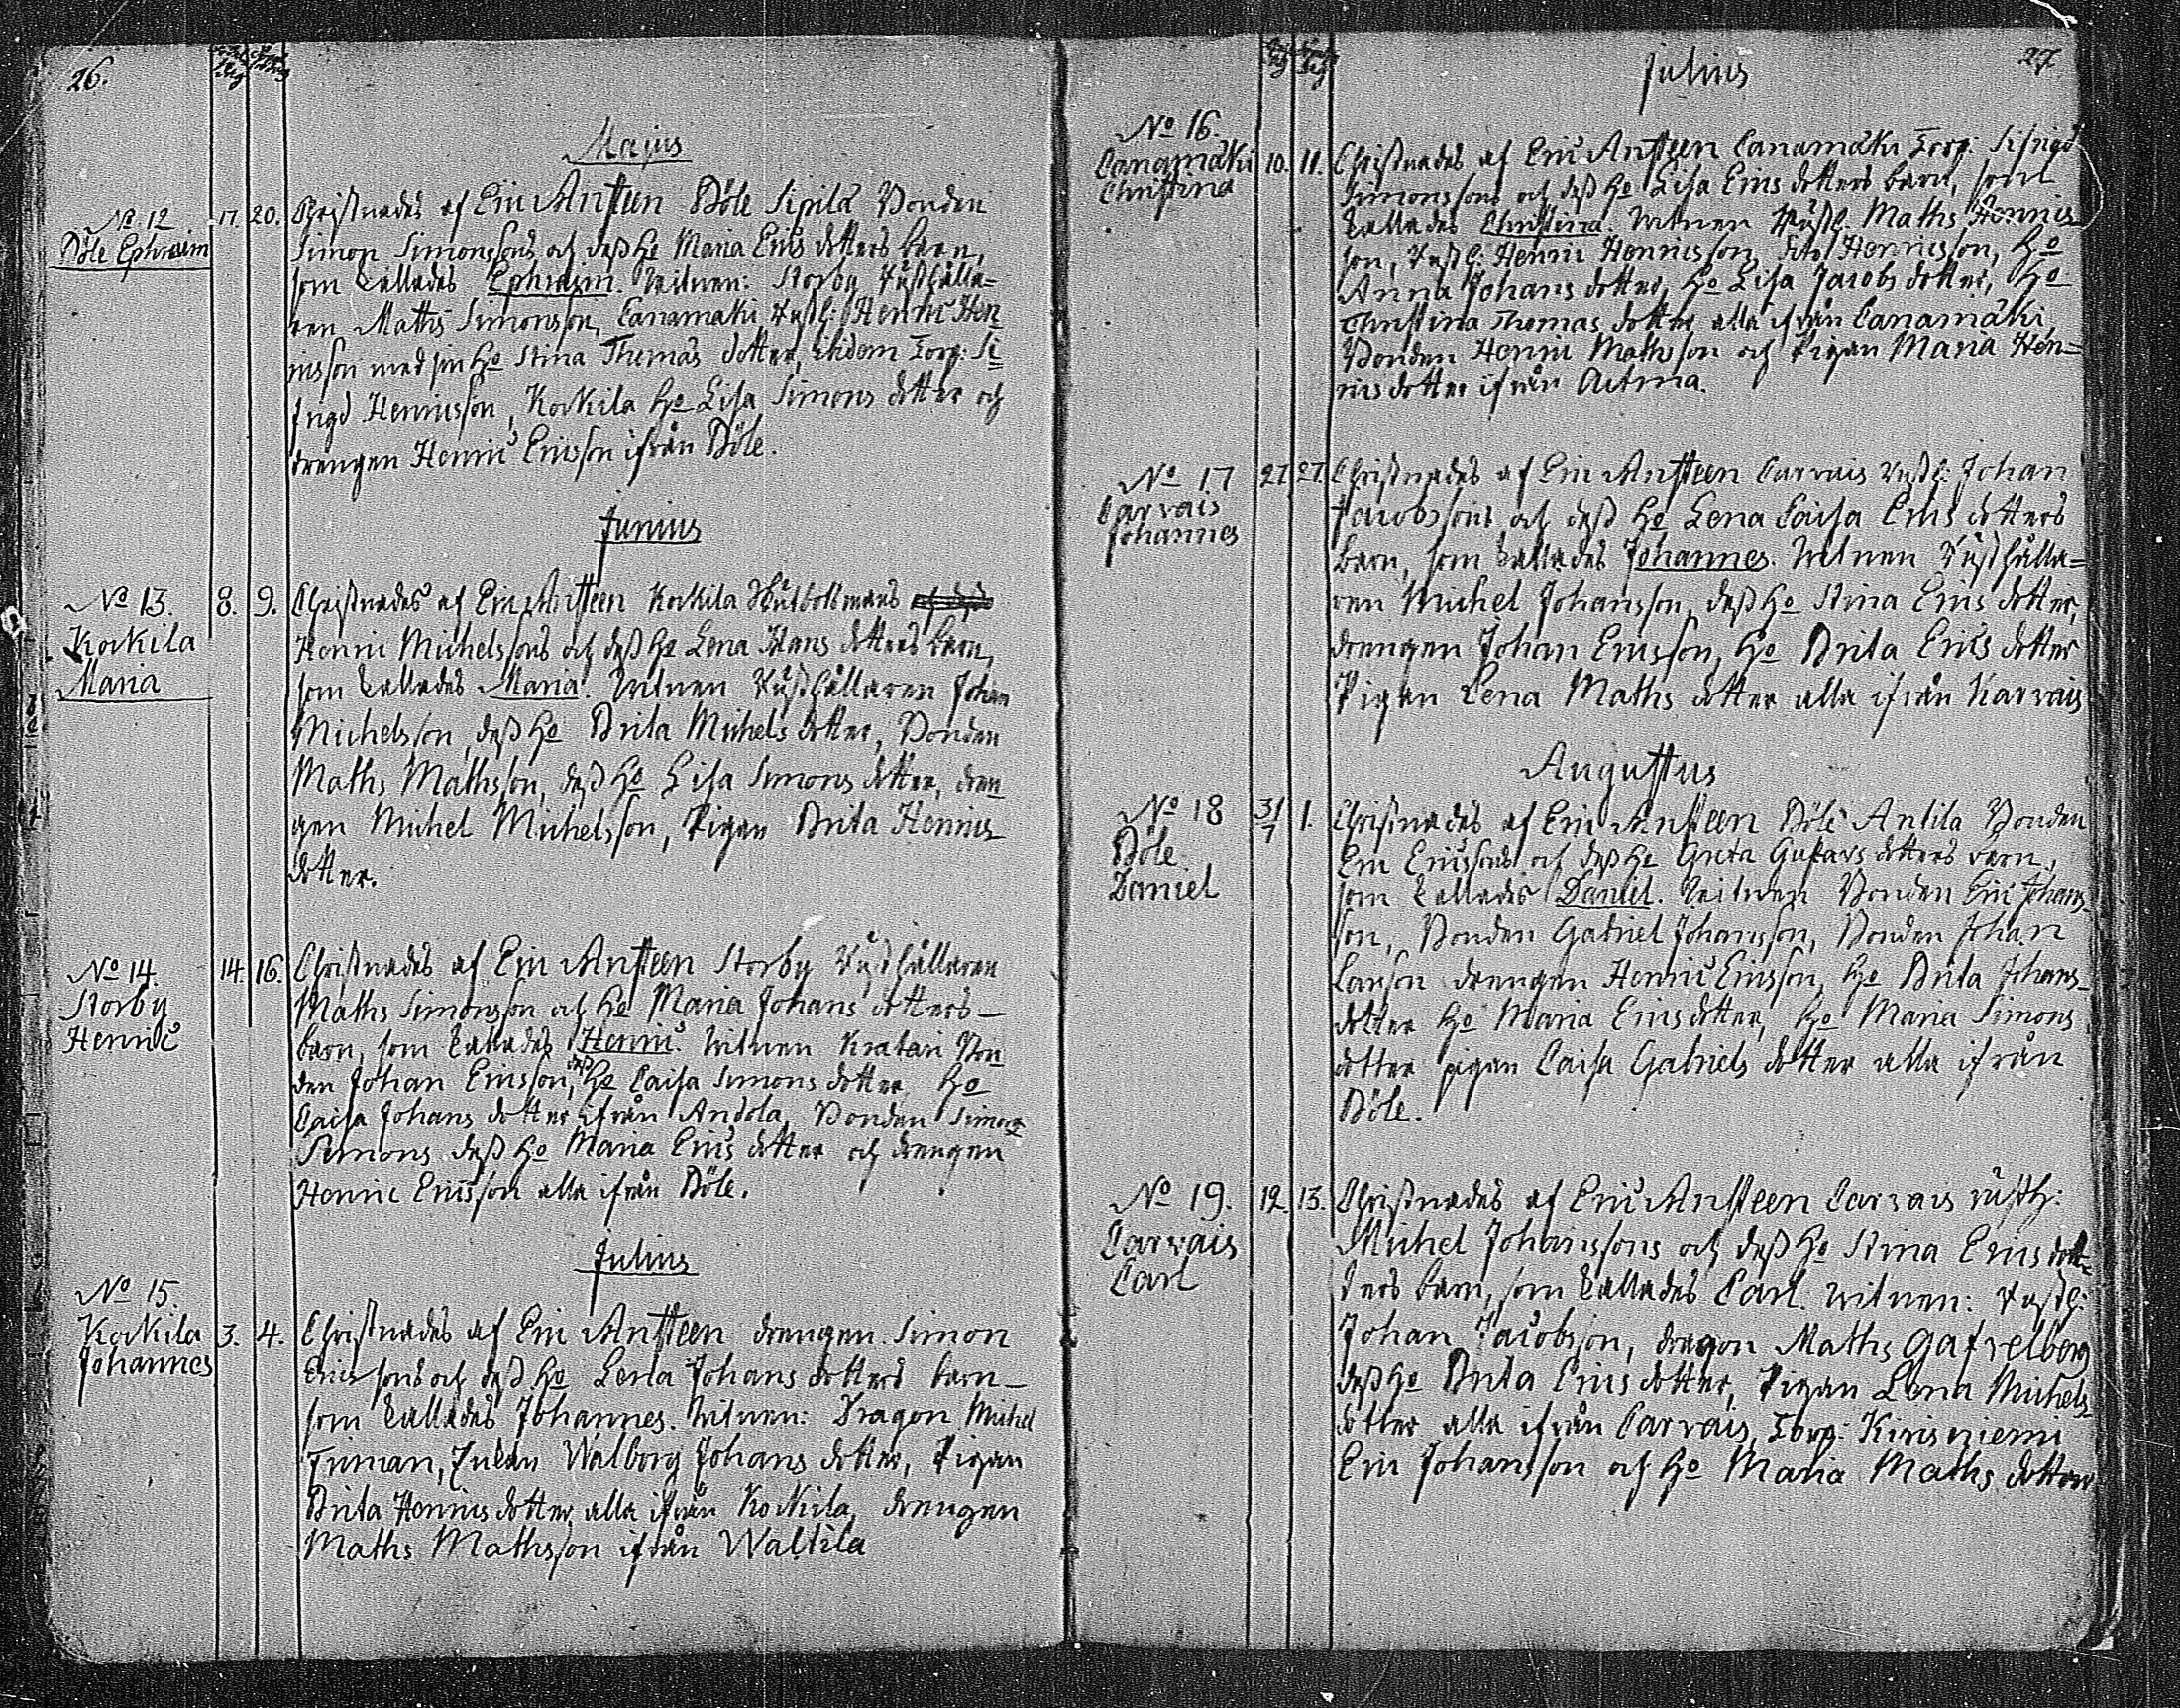 26.
Majus
No 12
Böle Ephraim
17. 20.
Christnades af Eric Ansteen Böle Sipilä Bonden
Simon Simonssons och dess Ho Maria Erics dotters barn,
som kallades Ephraim. Witnen: Storby Rusthålla=
ren Maths Simonsson, Canamäki Rusth: Henric Hen
ricsson med sin Ho Stina Thomas dotter, Torp: Si
frgd Henricsson, Korkila Ho Lisa Simons dotter och
drengen Henric Ericsson ifrån Böle.
Junius
No 13.
Korkila
Maria
8. 9.
Christnades af Eric Ansteen Korkila
Henric Michelssons och dess Ho Lena Hans dotters barn,
som kallades Maria. Witnen Rusthållaren Johan
Michelsson, dess Ho Brita Michels dotter, Bonden
Maths Mathsson, dess Ho Lisa Simons dotter, dren
gen Michel Michelsson, Pigan Brita Henrics
dotter.
No 14.
Storby
Henric
14. 16.
Christnades af Eric Ansteen Storby Rusthållaren
Maths Simonsson och Ho Maria Johans dotters
barn, som kallades Henric. Witnen Kratari Bon
den Johan Ericsson, dess Ho Caisa Simons dotter, Ho
Caisa Johans dotter ifrån Andola, Bonden Simon
Simons dess Ho Maria Erics dotter och drengen
Henric Ericsson alla ifrån Böle.
Julius
No 15.
Korkila
Johannes
3. 4.
Christnades af Eric Ansteen drengen Simon
Ericssons och dess Ho Lena Johans dotters barn
som kallades Johannes. Witnen: Dragon Michel
Friman, Walborg Johans dotter, Pigan
Brita Henrics dotter alla ifrån Korkila, drengen
Maths Mathsson ifrån Waltila
27.
Julius
No 16.
Canamäki
Christina
10. 11.
Christnades af Eric Ansteen Canamäki Torp: Sifrigd
Simonssons och dess Ho Lisa Erics dotters barn, som
kallades Christina. Witnen Rusth. Maths Henrics
son, Rusth: Henric Henricsson, Henricsson, Ho
Anna Johans dotter, Ho Lisa Jacobs dotter, Ho
Christina Thomas dotter alla ifrån Canamäki,
Bonden Henric Mathsson och Pigan Maria Hen=
rics dotter ifrån Aitma.
No 17
Carvais
Johannes
27. 27.
Christnades af Eric Ansteen Carvais Rusth: Johan
Jacobssons och dess Ho Lena Caisa Erics dotters
barn, som kallades Johannes. Witnen Rusthålla=
ren Michel Johansson, dess Ho Stina Erics dotter,
drengen Johan Ericsson, Ho Brita Erics dotter
Pigan Lena Maths dotter alla ifrån Karvais
Augustus
No 18
Böle
Daniel
31/7 1.
Christnades af Eric Ansteen Böle Antila Bonden
Eric Ericssons och dess Ho Greta Gustavs dotters barn,
som kallades Daniel. Witnen Bonden Eric Johans
son, Bonden Gabriel Johansson, Bonden Johan
Larson drengen Henric Ericsson, Ho Brita Johans
dotter Ho Maria Erics dotter, Ho Maria Simons
dotter pigan Caisa Gabriels dotter alla ifrån
Böle.
No 19.
Carvais
Carl
12. 13.
Christnades af Eric Ansteen Carvais rusth:
Michel Johanssons och dess Ho Stina Erics dot
ters barn, som kallades Carl. Witnen: Rusth:
Johan Jacobsson, dragon Maths Gafvelberg
dess Ho Brita Erics dotter, Pigan Lena Michels
dotter alla ifrån Carvais, Torp: Kirisniemi
Eric Johansson och Ho Maria Maths dotter